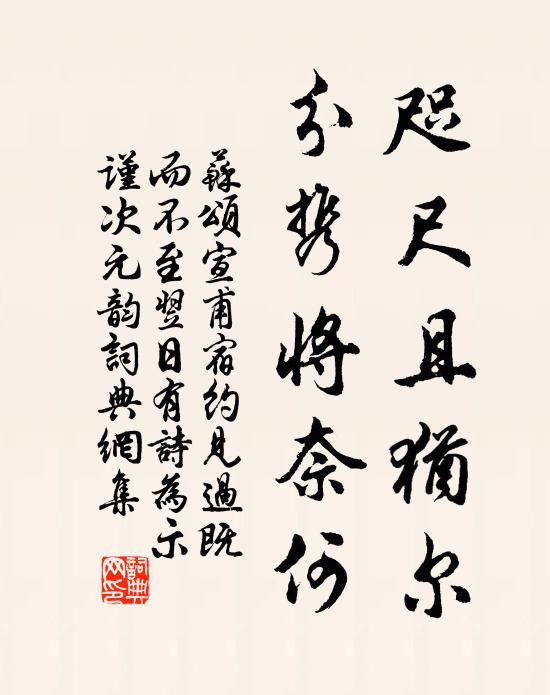 咫尺且猶尔
分携將奈何
蘇頌宣甫宿約見過既
而不至翌日有詩為示
謹次元韵詞典網集
詞典网印